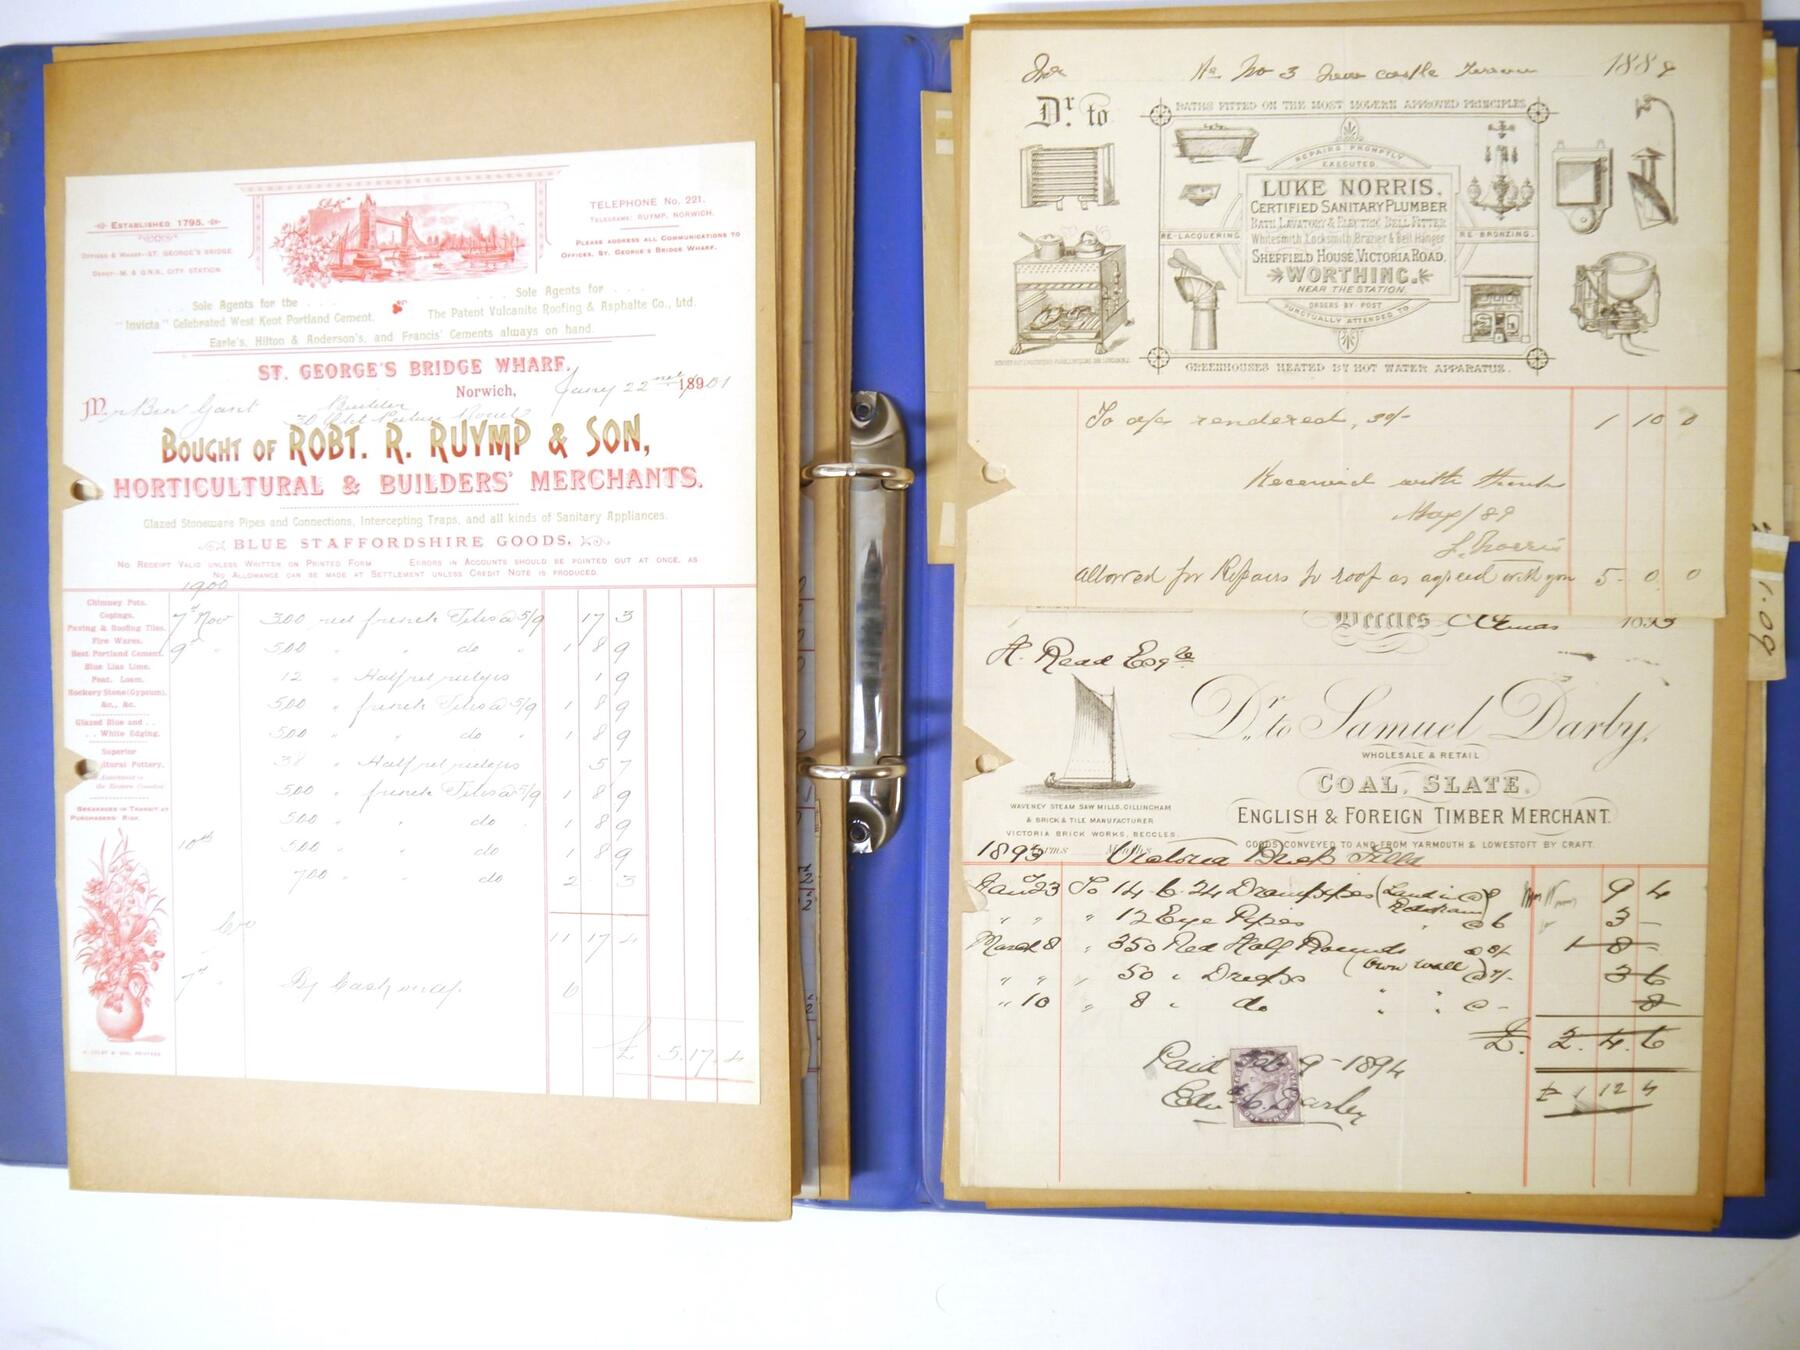 ESTABLISHED 1795.
OFFICES & WHARF—ST. GEORGE'S BRIDGE.
DEPOT—M. & G.N.R. CITY STATION.
TELEPHONE No. 221.
TELEGRAMS: RUYMP, NORWICH.
PLEASE ADDRESS ALL COMMUNICATIONS TO
OFFICES, ST. GEORGE'S BRIDGE WHARF.
Sole Agents for the . . .
"Invicta" Celebrated West Kent Portland Cement.
. . . Sole Agents for . . .
The Patent Vulcanite Roofing & Asphalte Co., Ltd.
Earle's, Hilton & Anderson's, and Francis' Cements always on hand.
ST. GEORGE'S BRIDGE WHARF,
Norwich, Jany 22nd 1901
Mr Ben Gant Builder
BOUGHT OF ROBT. R. RUYMP & SON,
HORTICULTURAL & BUILDERS' MERCHANTS.
Glazed Stoneware Pipes and Connections, Intercepting Traps, and all kinds of Sanitary Appliances.
BLUE STAFFORDSHIRE GOODS.
NO RECEIPT VALID UNLESS WRITTEN ON PRINTED FORM ERRORS IN ACCOUNTS SHOULD BE POINTED OUT AT ONCE, AS
NO ALLOWANCE CAN BE MADE AT SETTLEMENT UNLESS CREDIT NOTE IS PRODUCED.
1900
Chimney Pots.
Copings.
Paving & Roofing Tiles.
Fire Wares.
Best Portland Cement.
Blue Lias Lime.
Peat. Loam.
Rockery Stone (Gypsum).
&c., &c.
Glazed Blue and . .
. . White Edging.
Superior
Pottery.
BREAKAGES IN TRANSIT AT
PURCHASERS' RISK.
7th Nov 300 red french Tiles @ 5/9 17 3
9th " 500 " " do " 1 8 9
12 " Half rd ridges 1 9
500 " french Tiles @ 5/9 1 8 9
500 " " do " 1 8 9
38 " Half rd ridges 5 7
500 " french Tiles @ 5/9 1 8 9
500 " " do " 1 8 9
10th 500 " " do 1 8 9
700 " " do 2 . 3
11 17 4
7th " By Cash 6
£ 5.17.4
No 3 New castle Terrace 1889
Dr. to
BATHS FITTED ON THE MOST MODERN APPROVED PRINCIPLES
REPAIRS PROMPTLY
EXECUTED
LUKE NORRIS,
CERTIFIED SANITARY PLUMBER
BATH LAVATORY & ELECTRIC BELL FITTER
Whitesmith, Locksmith, Brazier & Bell Hanger
RE-LACQUERING
RE-BRONZING.
SHEFFIELD HOUSE, VICTORIA ROAD,
WORTHING.
NEAR THE STATION.
ORDERS BY POST
PUNCTUALLY ATTENDED TO
GREENHOUSES HEATED BY HOT WATER APPARATUS.
To a/c rendered, 30/- 1 10 0
Received with thanks
May/89
L. Norris
allowed for Repairs to roof as agreed with you 5 - 0 0
Beccles Xmas 1893
H. Read Esqre
Dr. to Samuel Darby,
WHOLESALE & RETAIL
COAL, SLATE,
ENGLISH & FOREIGN TIMBER MERCHANT.
GOODS CONVEYED TO AND FROM YARMOUTH & LOWESTOFT BY CRAFT.
WAVENEY STEAM SAW MILLS, GILLINGHAM
& BRICK & TILE MANUFACTURER
VICTORIA BRICK WORKS, BECCLES.
1893 Victoria
Jan 23 To 14 6.24 Drain pipes 9 4
" " " 12 Eye Pipes @ 6 3 -
March 8 " 350 Red Half Rounds 1 8 -
" " " 50 " (own wall) 3 6
" 10 " 8 " do " " @ - 8
£. 2.4.6
Paid Feb 9 - 1894
£ 1 12 4
Darby
1.09